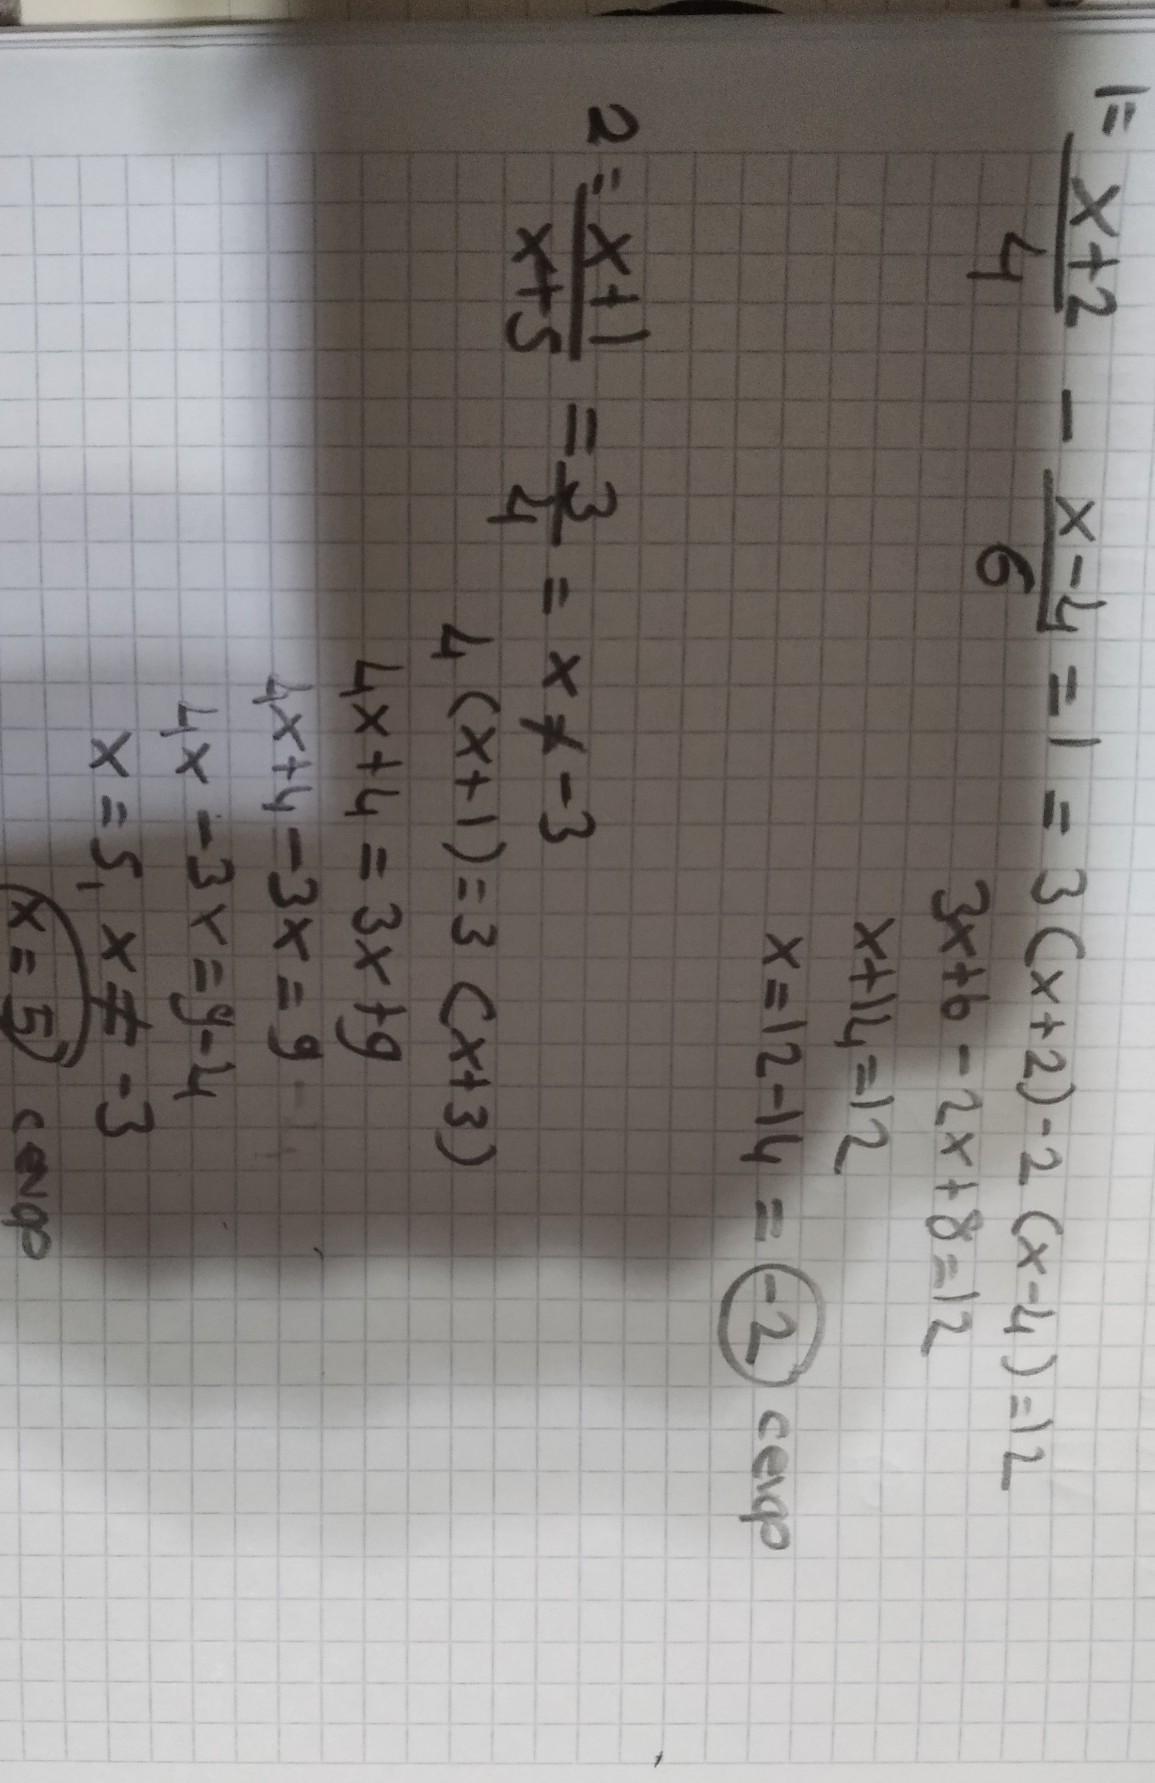 1= x+2/4 - x-4/6 = 1 = 3(x+2)-2(x-4)=12
3x+6-2x+8=12
x+14=12
x=12-14 = -2 cevap
2= x+1/x+5 = 3/4 = x ≠ -3
4(x+1)=3(x+3)
4x+4=3x+9
4x+4-3x=9
4x-3x=9-4
x=5, x≠-3
x=5 cevap